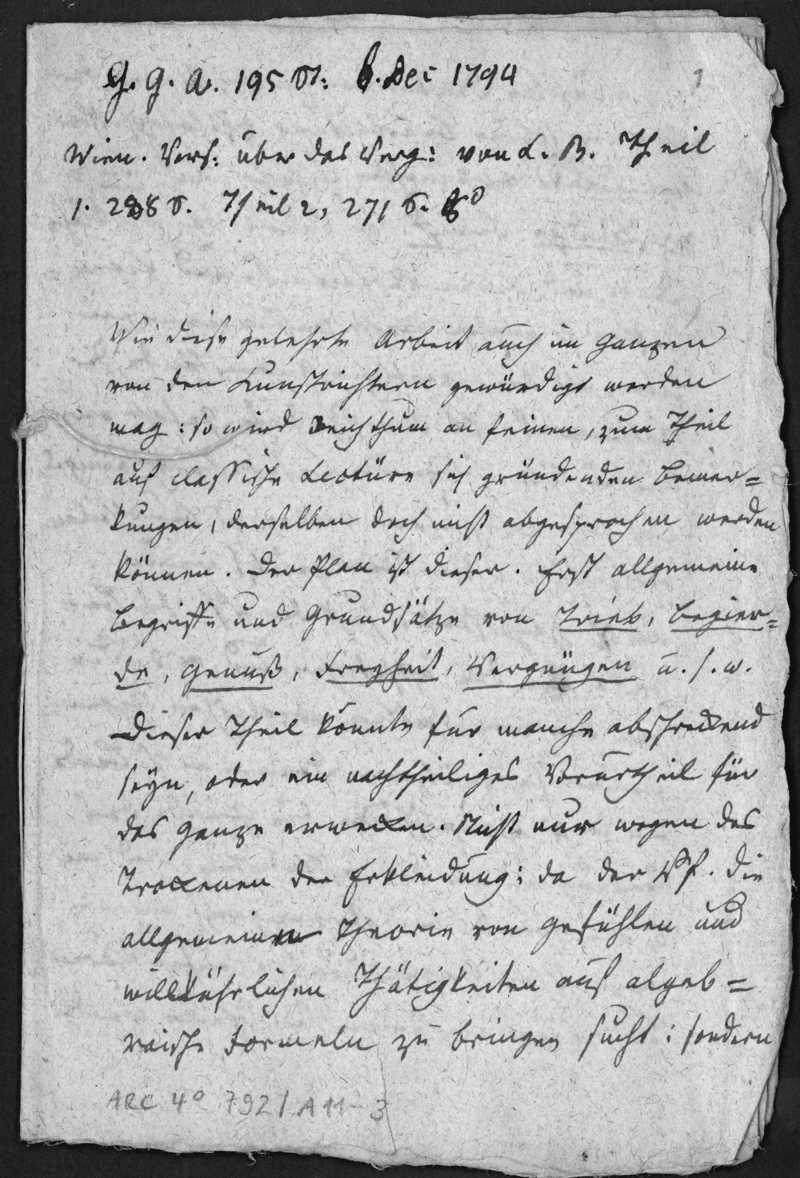 G. g. A. 195 St: 6. Dec 1794
1
Wien. Vers: über das Verg: von L. B. Theil
1. 288 S. Theil 2, 271 S. 8°
Wie diese gelehrte Arbeit auch im Ganzen
von den Kunstrichtern gewürdigt werden
mag: so wird Reichthum an feinen, zum Theil
auf classische Lectüre sich gründenden Bemer=
kungen, derselben doch nicht abgesprochen werden
können. Der Plan ist dieser. Erst allgemeine
Begriffe und Grundsätze von Trieb, Begier=
de, Genuß, Freyheit, Vergnügen u. s. w.
Dieser Theil könnte für manche abschreckend
seyn, oder ein nachtheiliges Vorurtheil für
das Ganze erwecken. Nicht nur wegen des
Trockenen der Erkleidung: da der Vf. die
allgemeinen Theorie von Gefühlen und
willkührlichen Thätigkeiten auf algeb=
raische Formeln zu bringen sucht: sondern
ARC 4° 792 / A 11-3